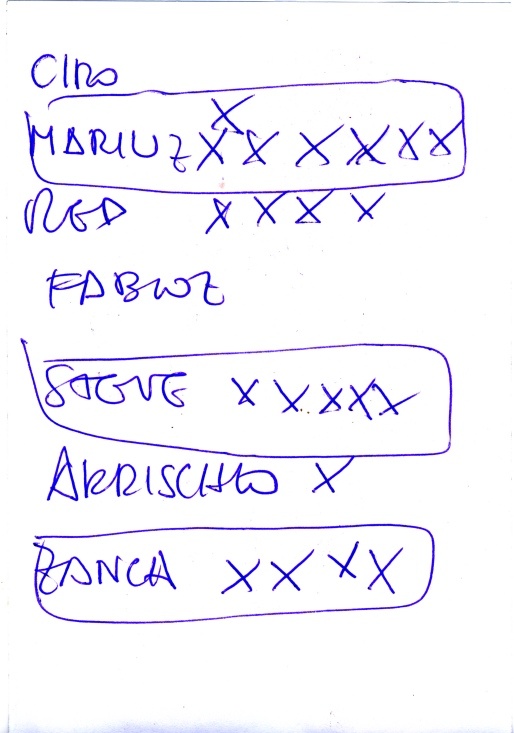 CIRO
X
MARIUZ X X X X X X
RED X X X X
FABIOZ
STEVE X X X X X
ARRISCHIO X
ZANCA X X X X